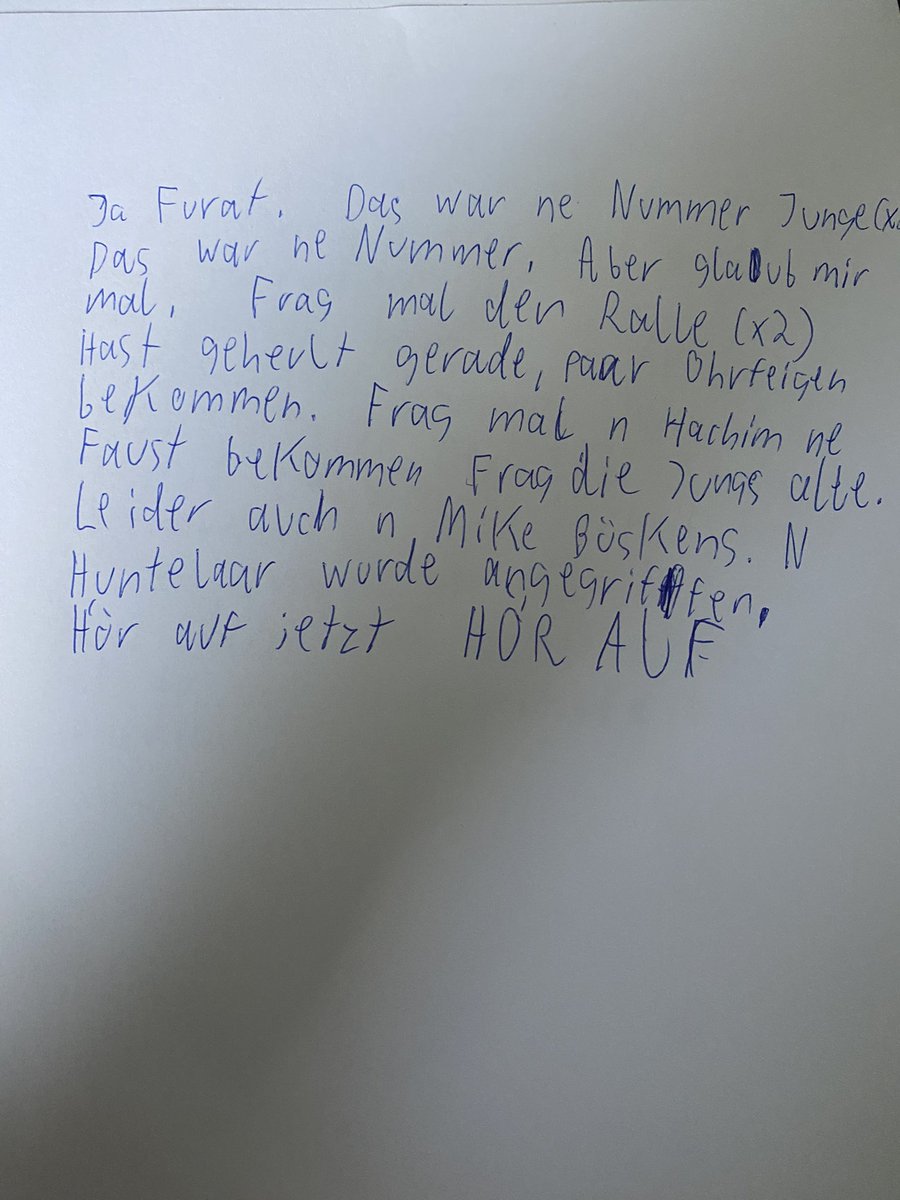 Ja Furat. Das war ne Nummer Junge (x
Das war ne Nummer. Aber glaub mir
mal. Frag mal den Ralle (x2)
Hast geheult gerade, paar Ohrfeigen
bekommen. Frag mal n Hachim ne
Faust bekommen Frag die Jungs alte.
Leider auch n Mike Büskens. N
Huntelaar wurde angegriffen.
Hör auf jetzt HÖR AUF